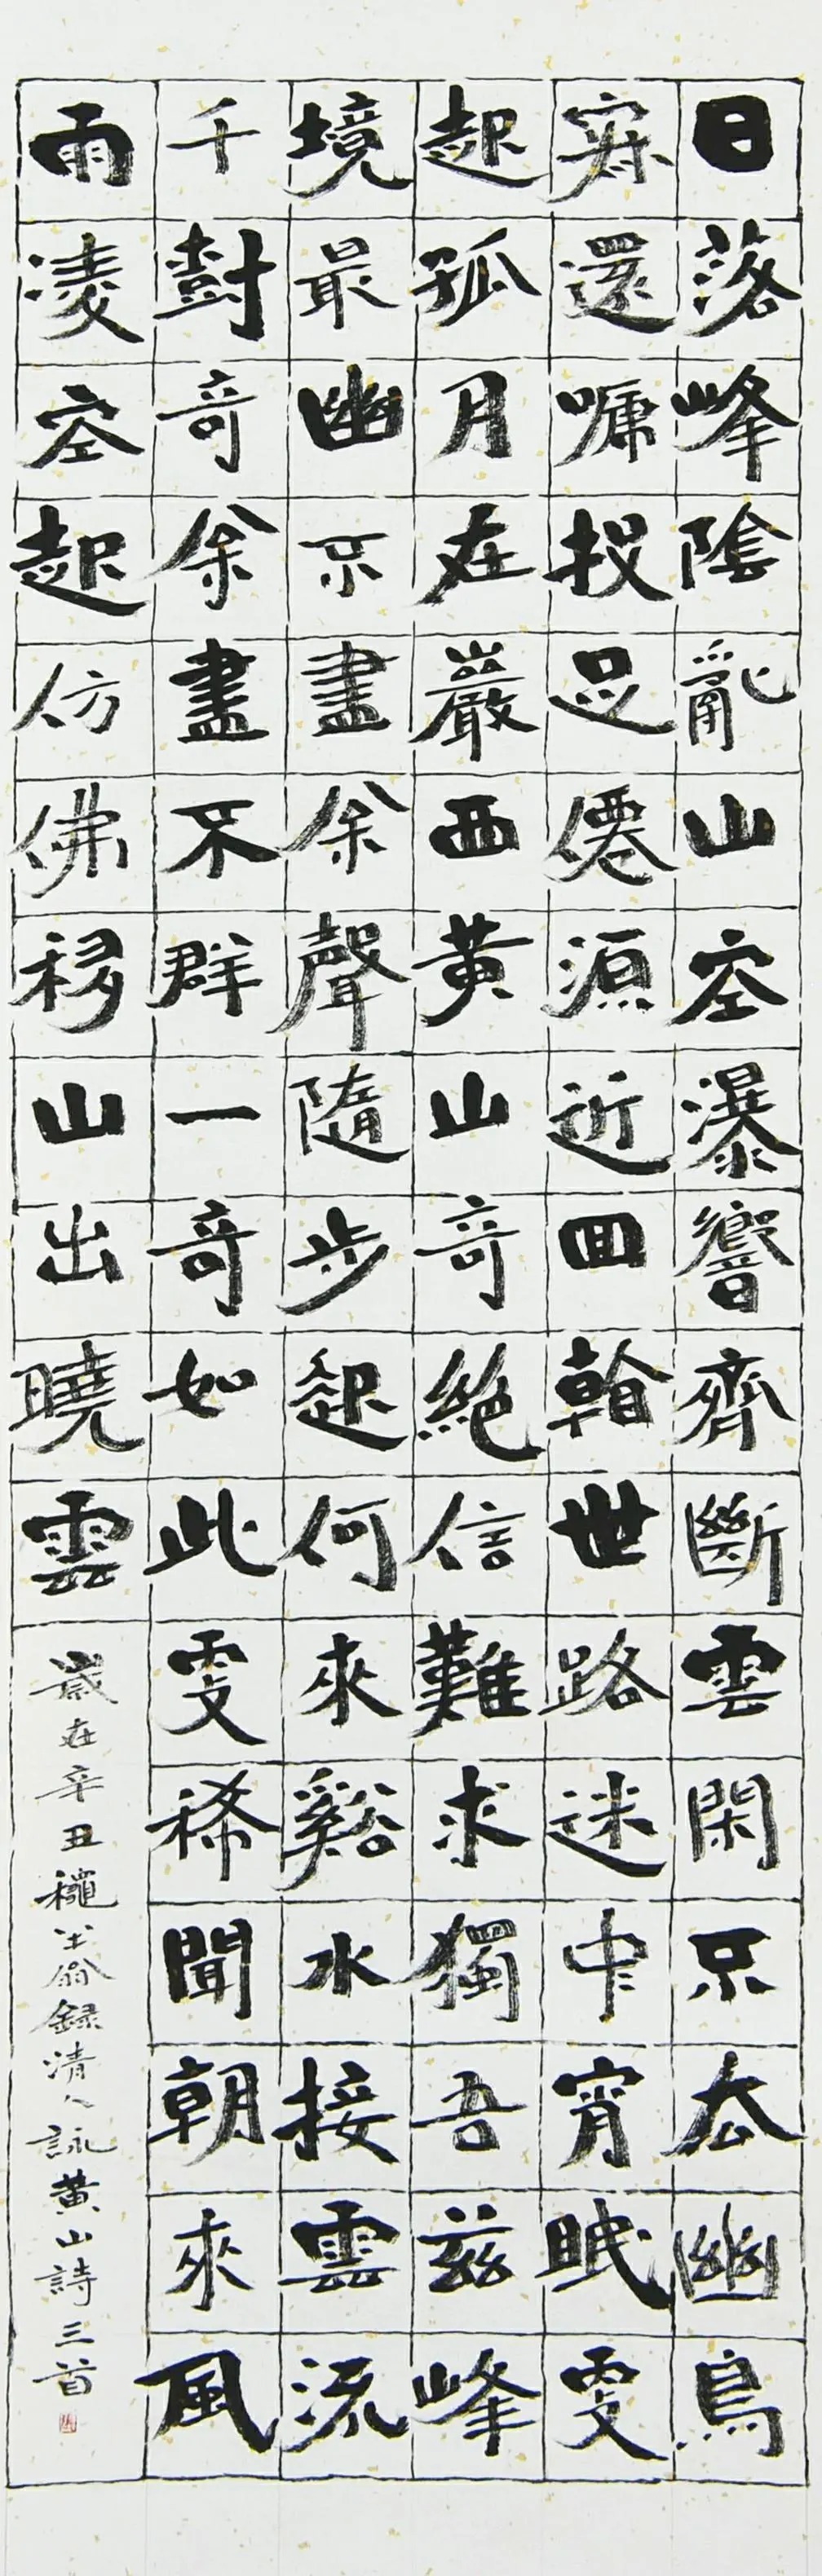 日落峰陰亂山空瀑響齊斷雲閑不去幽鳥
寂還嗁投足僊源近回看世路迷中宵眠更
起孤月在巖西黃山奇絕信難求獨吾茲峰
境最幽不盡余聲隨步起何來谿水接雲流
千樹奇余盡不群一奇如此更稀聞朝來風
雨凌空起仿佛移山出曉雲
歲在辛丑龝翁録清人詠黃山詩三首